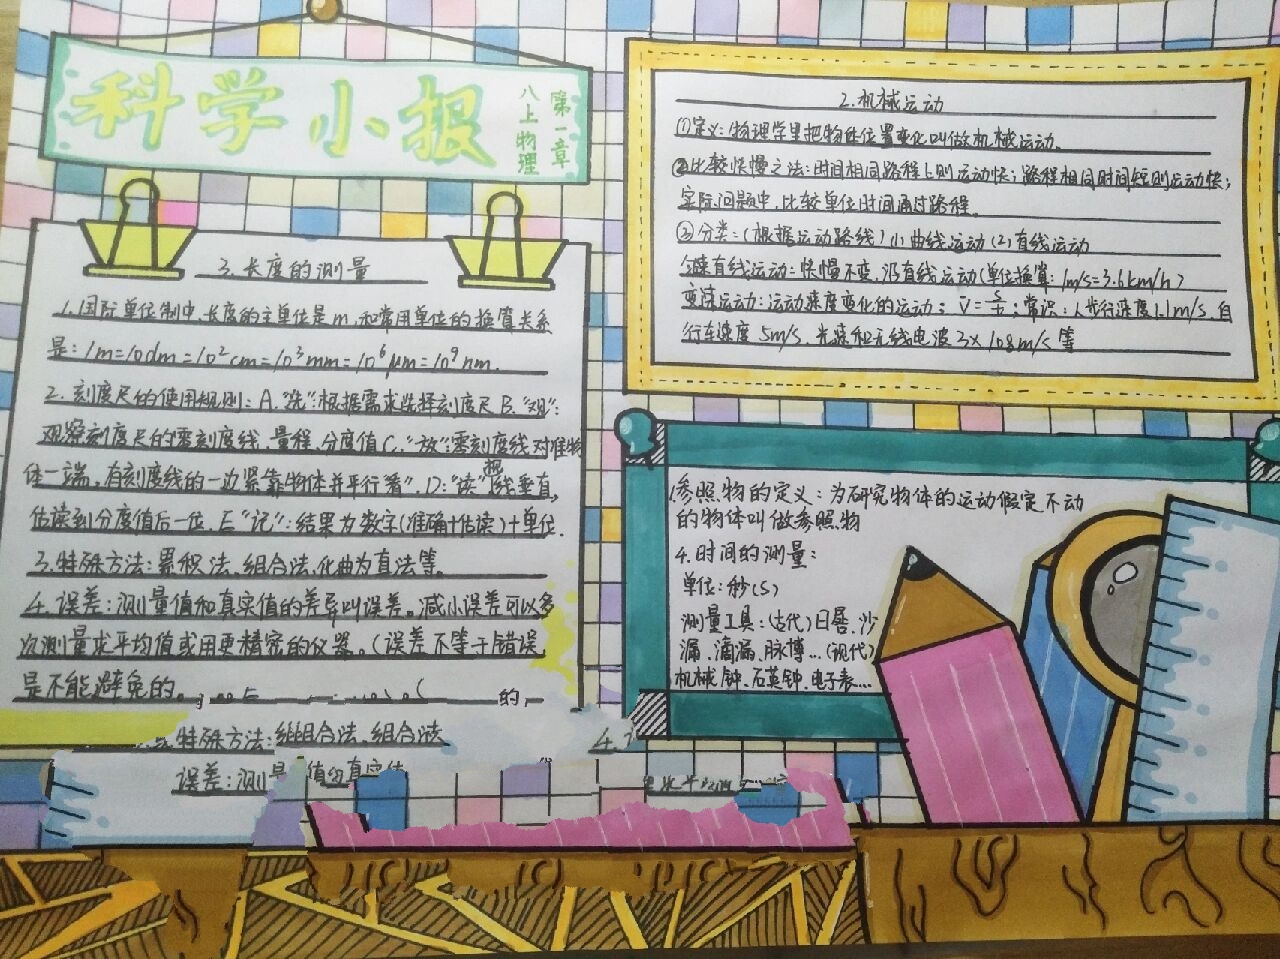 科学小报
第一章
八上物理
3.长度的测量
1.国际单位制中,长度的主单位是m,和常用单位的换算关系
是:1m=10dm=10²cm=10³mm=10⁶μm=10⁹nm.
2.刻度尺的使用规则:A."选":根据需求选择刻度尺 B."观":
观察刻度尺的零刻度线、量程、分度值 C."放":零刻度线对准物
体一端,有刻度线的一边紧靠物体并平行着". D:"读"视线垂直,
估读到分度值后一位. E"记":结果为数字(准确+估读)+单位.
3.特殊方法:累积法、组合法、化曲为直法等.
4.误差:测量值和真实值的差异叫误差。减小误差可以多
次测量求平均值或用更精密的仪器。(误差不等于错误
是不能避免的。
的,
特殊方法 组合法、组合法
误差:测 值 真实
2.机械运动
①定义:物理学里把物体位置变化叫做机械运动.
②比较快慢之法:时间相同路程长则运动快;路程相同时间短则运动快;
实际问题中,比较单位时间通过路程。
③分类:(根据运动路线)(1)曲线运动(2)直线运动
匀速直线运动:快慢不变,沿直线运动(单位换算:1m/s=3.6km/h)
变速运动:运动速度变化的运动;v̄=s/t;常识:人步行速度1.1m/s,自
行车速度5m/s,光速和无线电波3×108m/s等
1.参照物的定义:为研究物体的运动假定不动
的物体叫做参照物
4.时间的测量:
单位:秒(s)
测量工具:(古代)日晷、沙
漏、滴漏、脉搏...(现代)
机械钟、石英钟、电子表...
4.